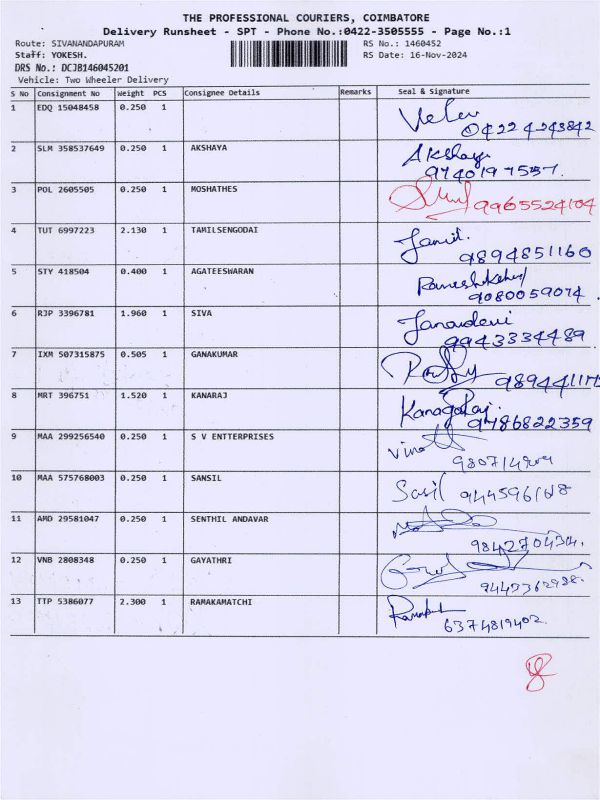 THE PROFESSIONAL COURIERS, COIMBATORE
Delivery Runsheet - SPT - Phone No.:0422-3505555 - Page No.:1
Route: SIVANANDAPURAM RS No.: 1460452
Staff: YOKESH. RS Date: 16-Nov-2024
DRS No.: DCJB146045201
Vehicle: Two Wheeler Delivery
S No Consignment No Weight PCS Consignee Details Remarks Seal & Signature
1 EDQ 15048458 0.250 1
0422 4243842
2 SLM 358537649 0.250 1 AKSHAYA Akshaya
9740197557.
3 POL 2605505 0.250 1 MOSHATHES
9965524104
4 TUT 6997223 2.130 1 TAMILSENGODAI
9894851160
5 STY 418504 0.400 1 AGATEESWARAN
9080059074
6 RJP 3396781 1.960 1 SIVA Janaudevi
9943334489.
7 IXM 507315875 0.505 1 GANAKUMAR
8 MRT 396751 1.520 1 KANARAJ Kanagaraj
9486822359
9 MAA 299256540 0.250 1 S V ENTTERPRISES
10 MAA 575768003 0.250 1 SANSIL
11 AMD 29581047 0.250 1 SENTHIL ANDAVAR
984270434.
12 VNB 2808348 0.250 1 GAYATHRI
13 TTP 5386077 2.300 1 RAMAKAMATCHI
6374819402.